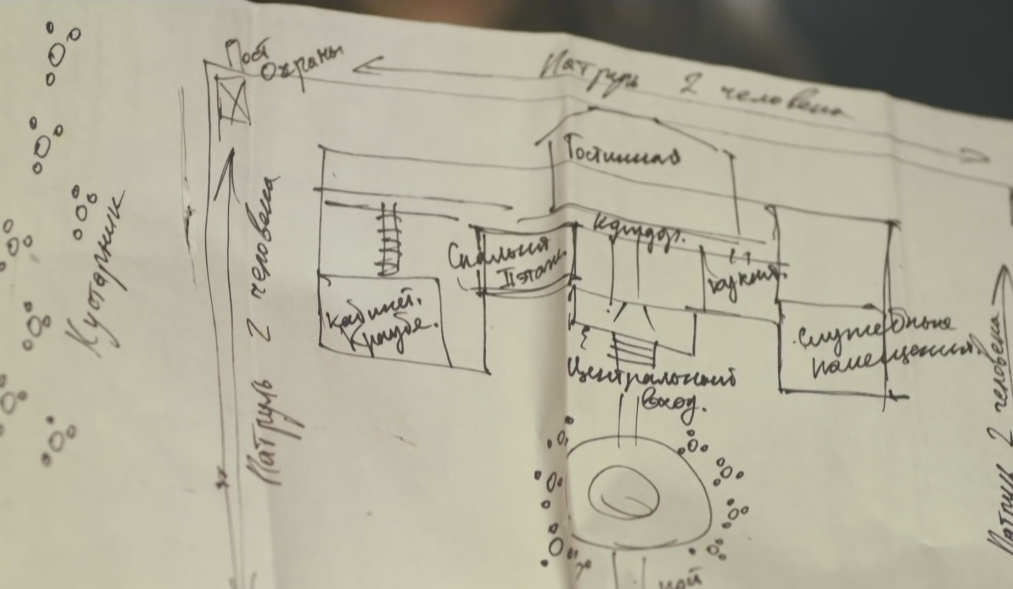 Пост
Охраны
Патруль 2 человека
Гостинная
Кустарник
Патруль 2 человека
коридор.
Спальня
II этаж.
кухня.
Кабинет.
Служебные
помещения.
Центральный
вход.
Патруль 2 человека